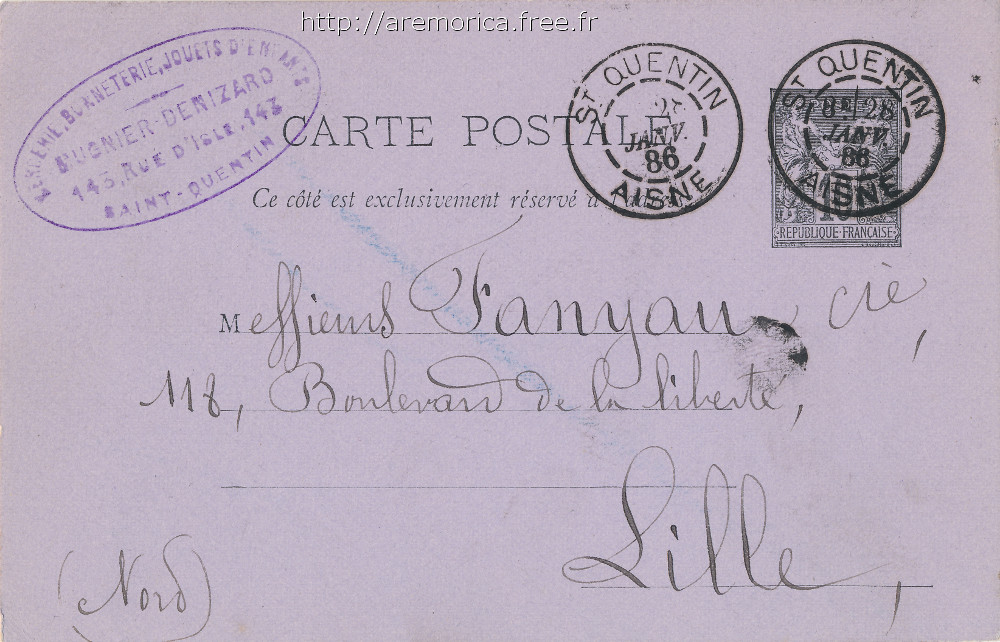 http://aremorica.free.fr
MERCERIE, BONNETERIE, JOUETS D'ENFANTS
BUGNIER-DENIZARD
143, RUE D'ISLE, 143
SAINT-QUENTIN
CARTE POSTALE
ST QUENTIN
JANV.
86
AISNE
ST QUENTIN
8E 28
JANV.
86
AISNE
Ce côté est exclusivement réservé à l'adresse
10
REPUBLIQUE FRANÇAISE
Messieurs Fanyau, cie,
118, Boulevard de la liberté,
Lille,
(Nord)